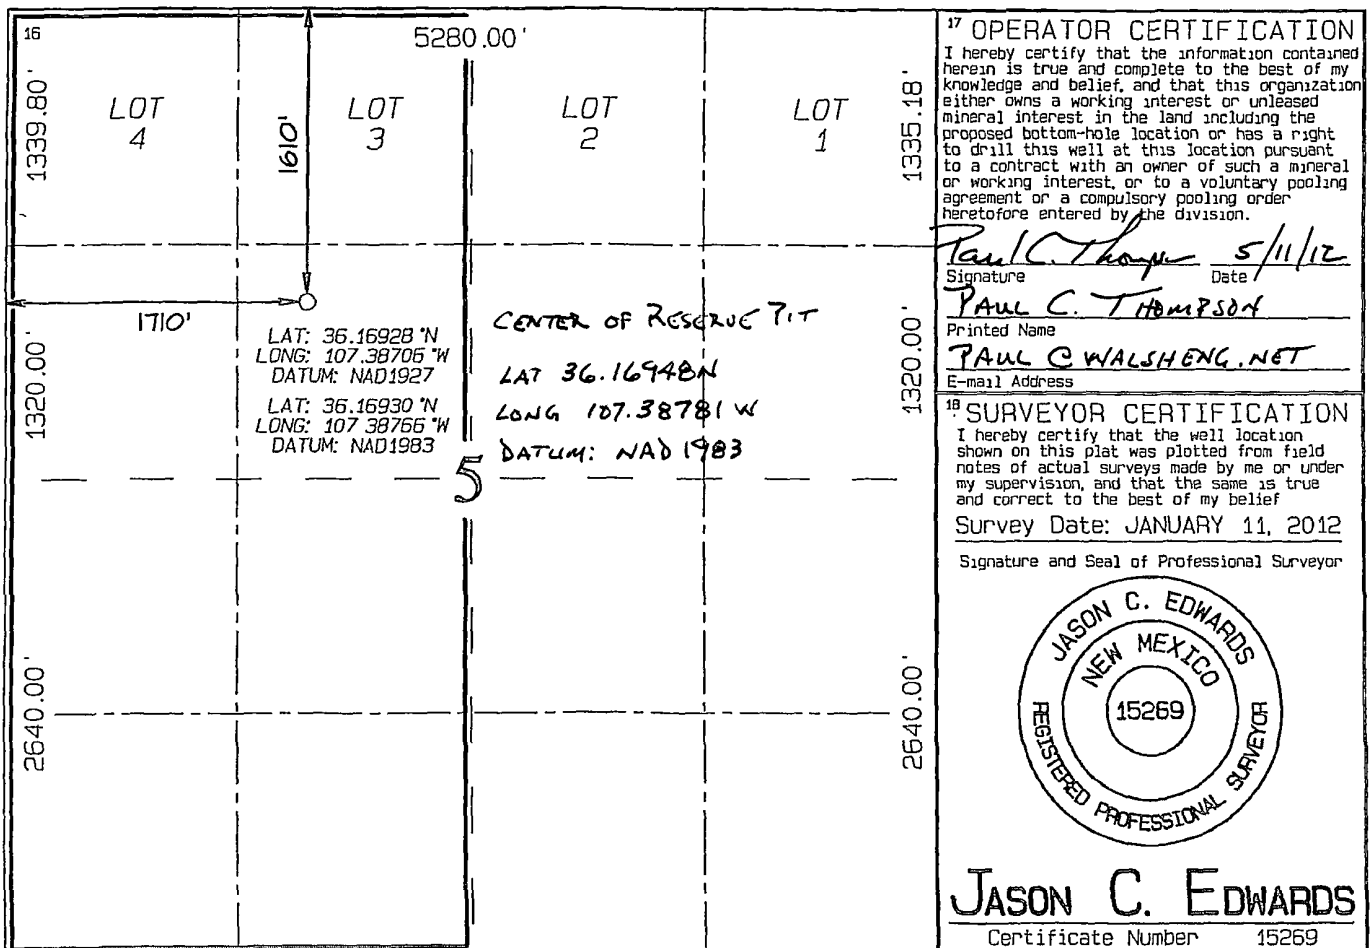 16
5280.00'
1339.80'
LOT
4
1610'
LOT
3
LOT
2
LOT
1
1335.18'
1710'
1320.00'
LAT: 36.16928 °N
LONG: 107.38706 °W
DATUM: NAD1927
LAT: 36.16930 °N
LONG: 107 38766 °W
DATUM: NAD1983
CENTER OF RESERVE PIT
LAT 36.16948N
LONG 107.38781 W
DATUM: NAD 1983
1320.00'
5
2640.00'
2640.00'
17 OPERATOR CERTIFICATION
I hereby certify that the information contained
herein is true and complete to the best of my
knowledge and belief, and that this organization
either owns a working interest or unleased
mineral interest in the land including the
proposed bottom-hole location or has a right
to drill this well at this location pursuant
to a contract with an owner of such a mineral
or working interest, or to a voluntary pooling
agreement or a compulsory pooling order
heretofore entered by the division.
Paul C. Thompson 5/11/12
Signature Date
PAUL C. THOMPSON
Printed Name
PAUL @ WALSHENG.NET
E-mail Address
18 SURVEYOR CERTIFICATION
I hereby certify that the well location
shown on this plat was plotted from field
notes of actual surveys made by me or under
my supervision, and that the same is true
and correct to the best of my belief
Survey Date: JANUARY 11, 2012
Signature and Seal of Professional Surveyor
JASON C. EDWARDS
NEW MEXICO
15269
REGISTERED PROFESSIONAL SURVEYOR
JASON C. EDWARDS
Certificate Number 15269